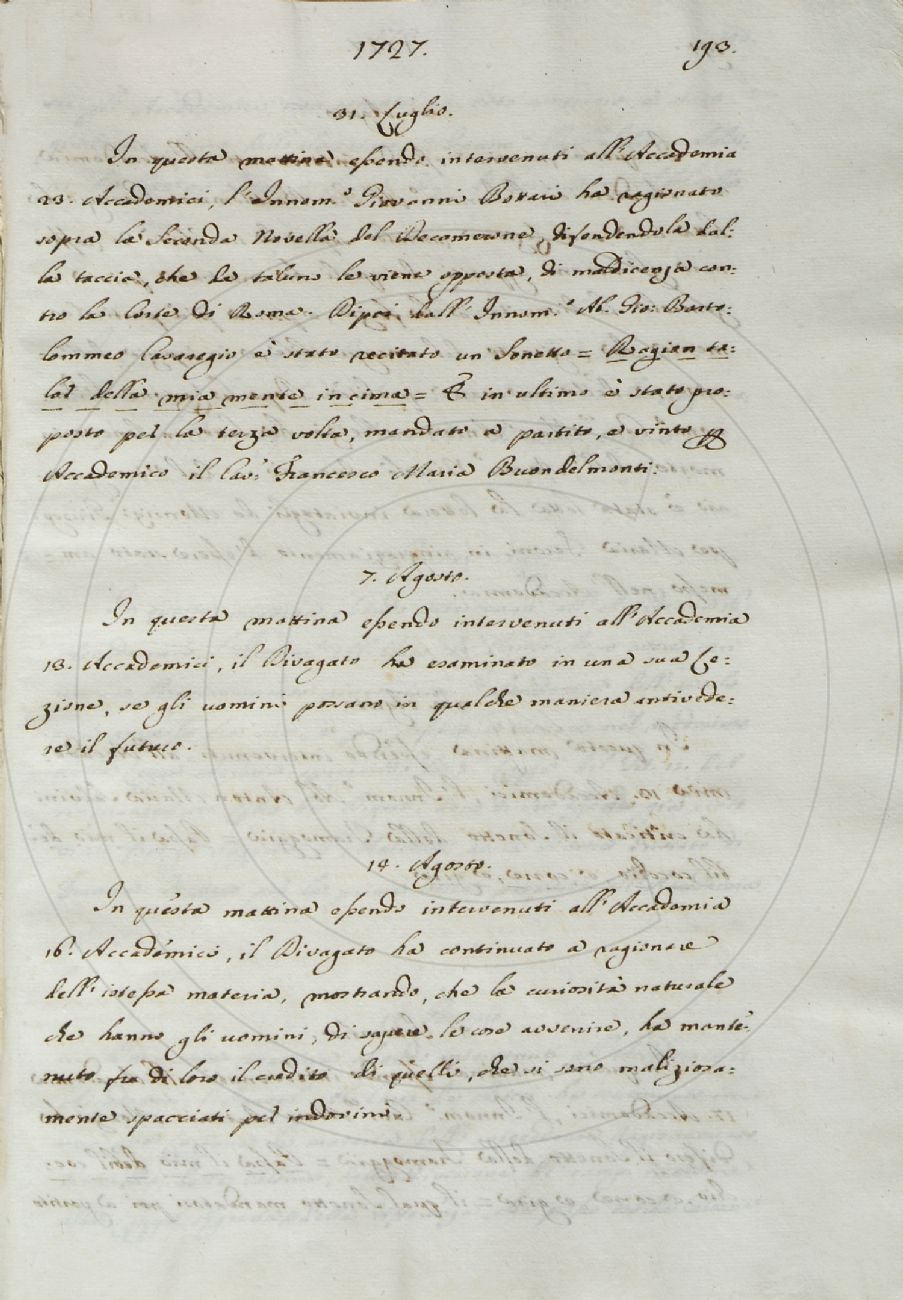 1727. 193.
31. Luglio.
In questa mattina essendo intervenuti all'Accademia
23. Accademici, l'Innom.º Giovanni Bottari ha ragionato
sopra la Seconda Novella del Decamerone, difendendola dal:
la taccia, che da taluno le viene opposta, di maldicenza con:
tro la Corte di Roma. Dipoi dall'Innom.º Ab. Gio: Barto:
lommeo Casaregio è stato recitato un Sonetto = Ragion ta:
lor della mia mente in cima = E in ultimo è stato pro:
posto per la terza volta, mandato a partito, e vinto p
Accademico il Cav.r Francesco Maria Buondelmonti.
7. Agosto.
In questa mattina essendo intervenuti all'Accademia
13. Accademici, il Divagato ha esaminato in una sua Le:
zione, se gli uomini possano in qualche maniera antivede:
re il futuro.
14. Agosto.
In questa mattina essendo intervenuti all'Accademia
16. Accademici, il Divagato ha continuato a ragionare
dell'istessa materia, mostrando, che la curiosità naturale
che hanno gli uomini, di sapere le cose avvenire, ha mante:
nuto fra di loro il credito di quelli, che si sono maliziosa:
mente spacciati per indovini.